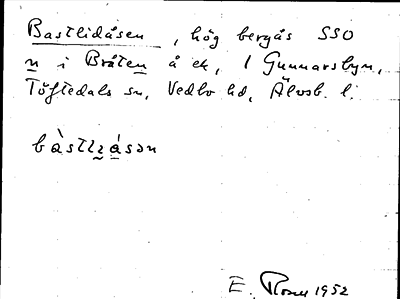 Bastlidåsen, hög bergås SSO
n i Bråten å ek, 1 Gunnarsbyn,
Töftedals sn, Vedbo hd, Älvsb. l.
bàstlɩásən
E. 1952